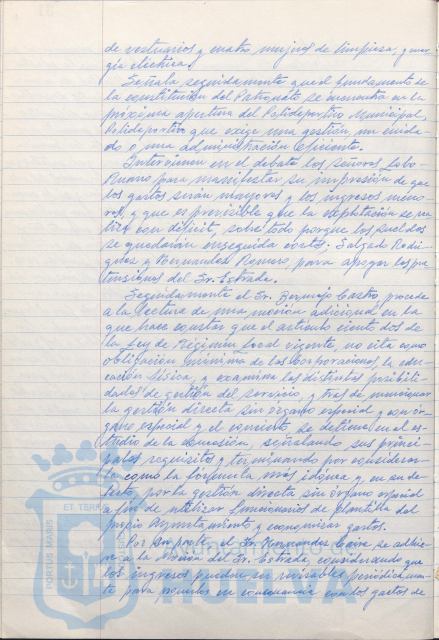 de vestuarios y cuatro mujeres de limpieza, y ener-
gía eléctrica.
Señala seguidamente que el fundamento de
la constitución del Patronato se encuentra en la
próxima apertura del Polideportivo Municipal,
Polideportivo que exige una gestión un cuida-
do o una administración eficiente.
Intervienen en el debate los señores Labo-
Pruano para manifestar su impresión de que
los gastos serán mayores y los ingresos meno-
res, y que es previsible que la explotación se rea-
lice con déficit, sobre todo porque los sueldos
se quedarán enseguida cortos; Salgado Rodrí-
guez y Bermúdez Romero, para apoyar las pre-
tensiones del Sr. Estrada.
Seguidamente el Sr. Bermejo Castro, procede
a la lectura de una moción adicional en la
que hace constar que el artículo ciento dos de
la Ley de Régimen Local vigente, no cita como
obligación mínima de las Corporaciones, la edu-
cación física, y examina las distintas posibili-
dades de gestión del servicio, y tras de enumerar
la gestión directa sin órgano especial y con ór-
gano especial y el concierto se detiene en el es-
tudio de la concesión, señalando sus princi-
pales requisitos y terminando por considerar-
la como la fórmula más idónea y, en su de-
fecto, por la gestión directa sin órgano especial
a fin de utilizar funcionarios de plantilla del
propio Ayuntamiento y economizar gastos.
Por su parte, el Sr. Hernández Caire se adhie-
re a la moción del Sr. Estrada, considerando que
los ingresos pueden ser revisables periódicamen-
te para ponerlos en consonancia con los gastos de
ET TERRA
PORTUS MARIS
Ayuntamiento de
HUELVA